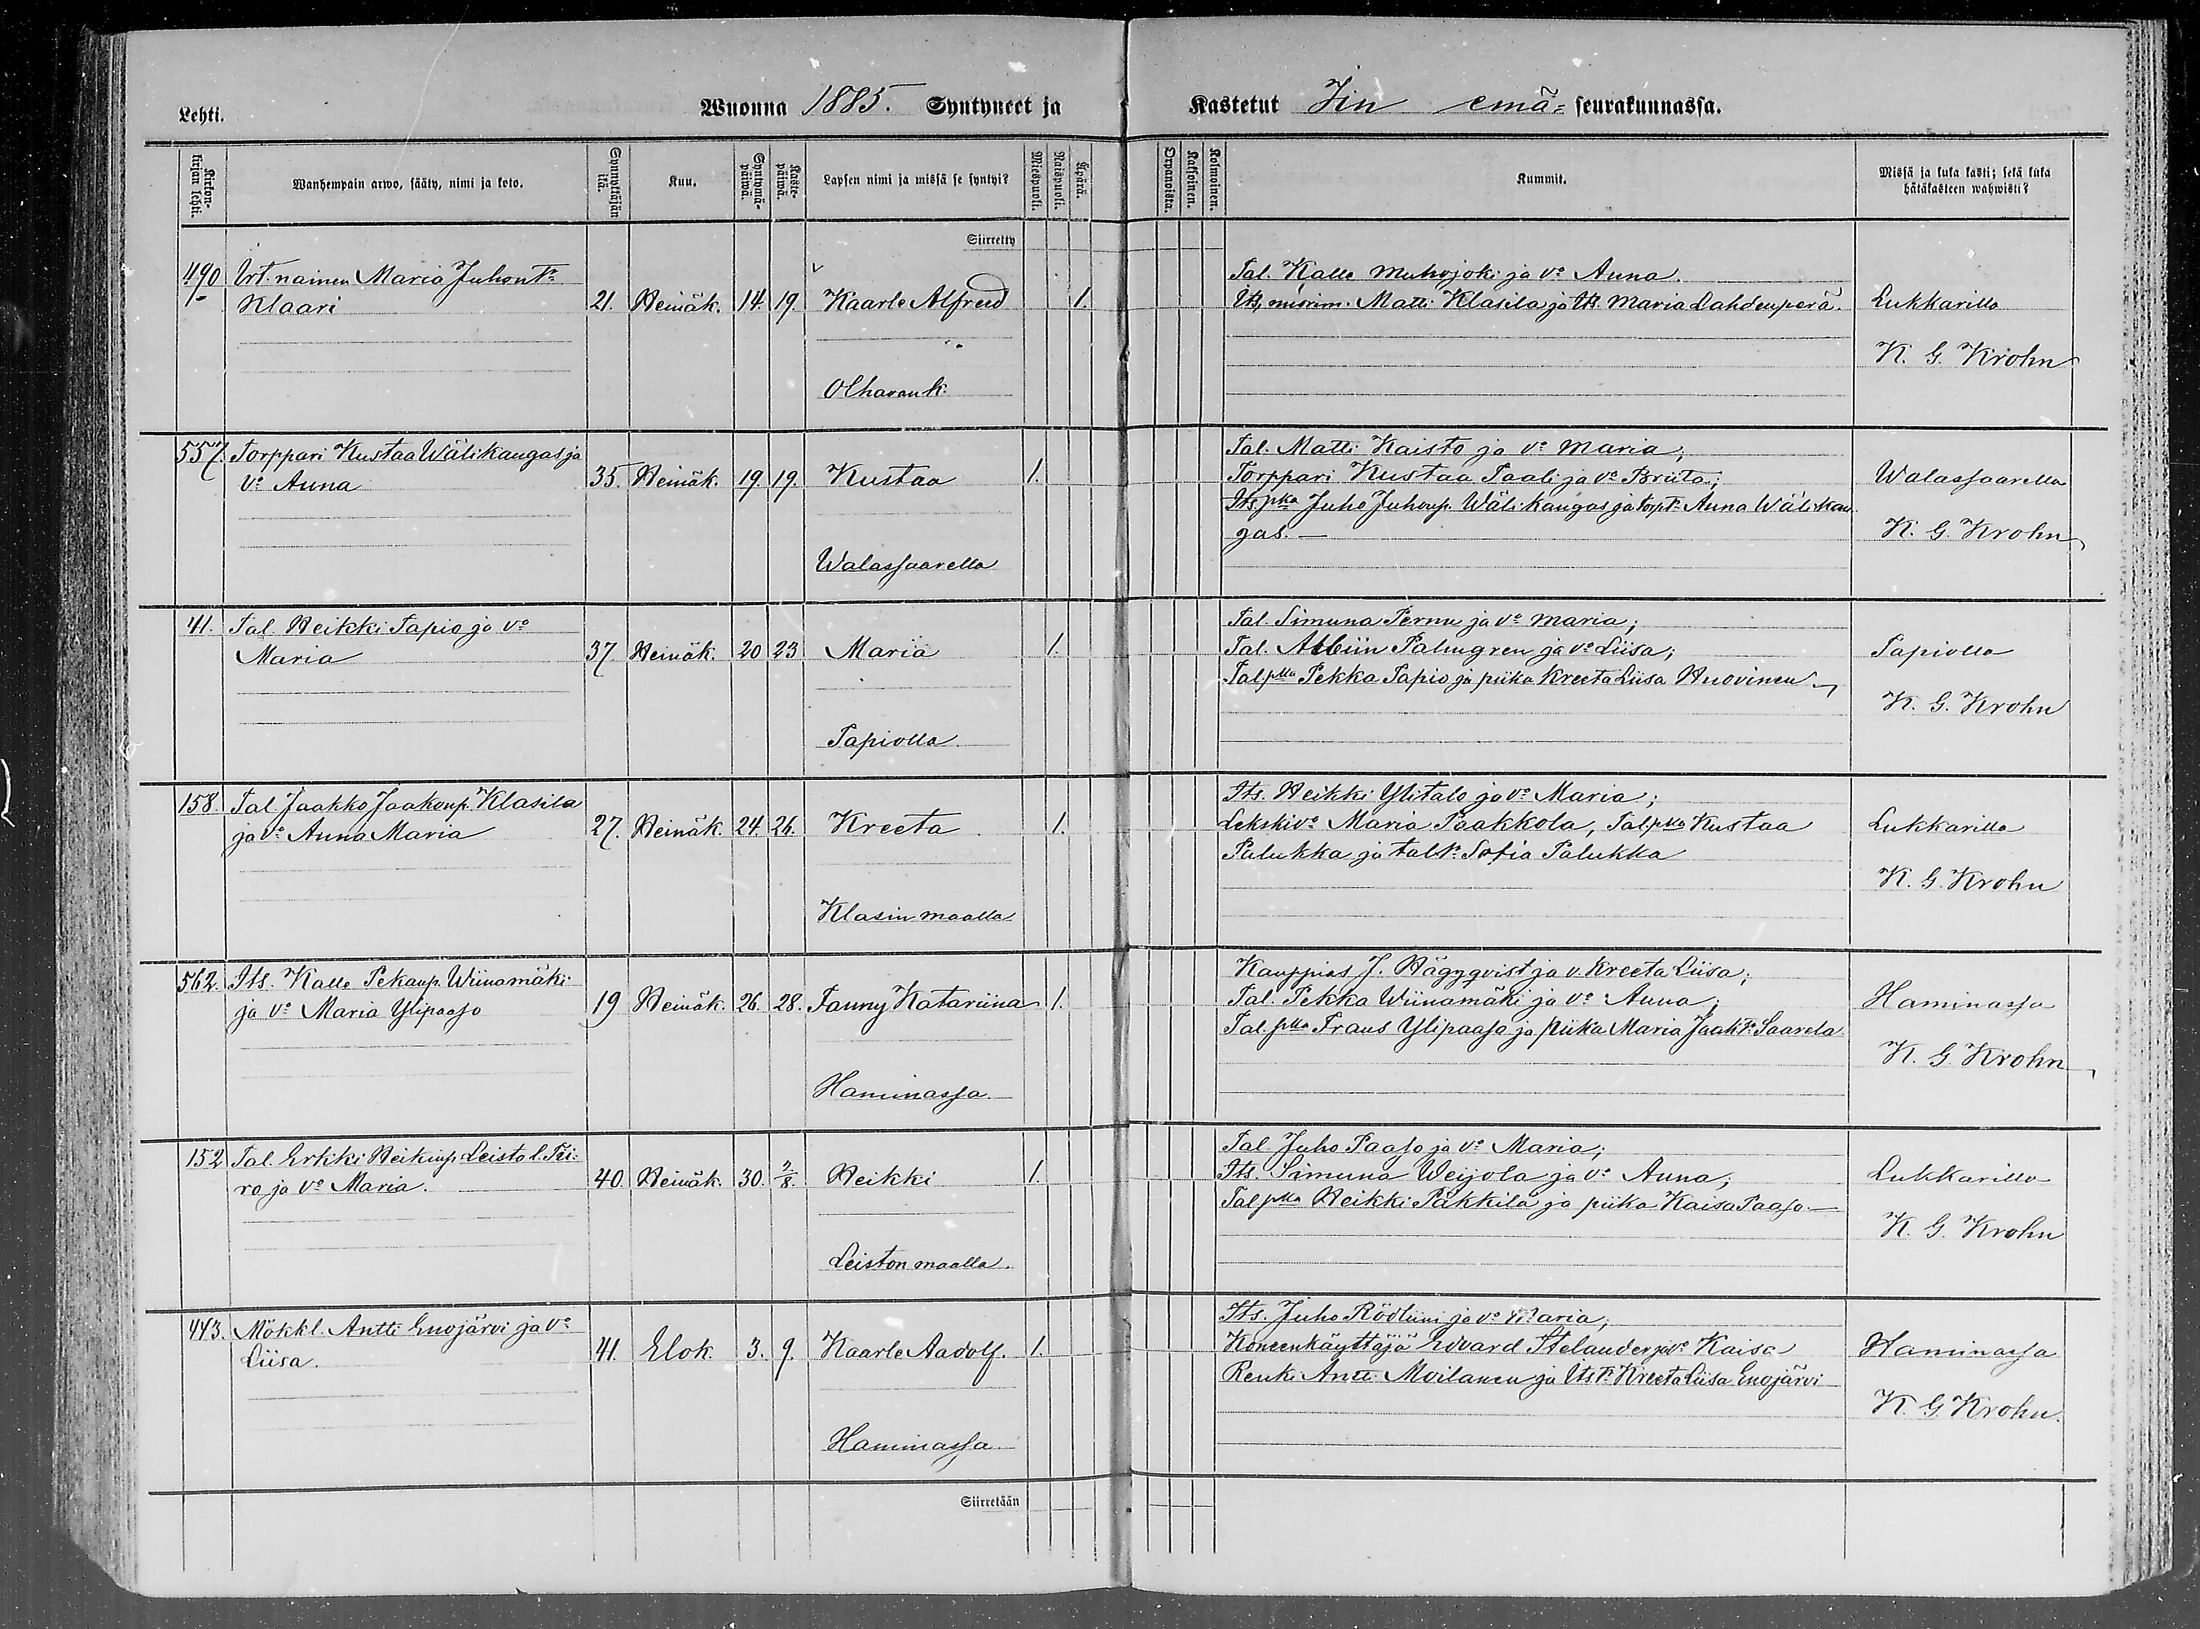 Lehti.
Wuonna 1885. Syntyneet ja Kastetut Iin emä= seurakunnassa.
Kirkonkirjan lehti.
Wanhempain arwo, sääty, nimi ja koto.
Synnyttäjän ikä.
Kuu.
Syntymäpäiwä.
Kastepäiwä.
Lapsen nimi ja missä se syntyi?
Miespuoli.
Naispuoli.
Äpärä.
Orpanoista.
Kaksoinen.
Kolmoinen.
Kummit.
Missä ja kuka kasti; sekä kuka hätäkasteen wahwisti?
Siirretty
490 Irt. nainen Maria Juhont:
Klaari 21. Heinäk. 14. 19. Kaarle Alfred 1.
Olhavank.
Tal. Kalle Muhojoki ja v:o Anna.
Matti Klasila ja Its. Maria Lahdenperä.
Lukkarilla
K. G. Krohn
557. Torppari Kustaa Wälikangas ja
v:o Anna 35. Heinäk. 19. 19. Kustaa 1.
Walassaarella
Tal. Matti Kaisto ja v:o Maria;
Torppari Kustaa Paali ja v:o Briita;
Its. pka Juho Juhonp. Wälikangas ja torpt: Anna Wälikan
gas. —
Walassaarella
K. G. Krohn
41. Tal. Heikki Tapio ja v:o
Maria 37 Heinäk. 20 23 Maria 1.
Tapiolla
Tal. Simuna Pernu ja v:o Maria;
Tal. Albiin Palmgren ja v:o Liisa;
Tal.pka Pekka Tapio ja piika Kreeta Liisa Huovinen
Tapiolla
K. G. Krohn
158. Tal. Jaakko Jaakonp. Klasila
ja v:o Anna Maria 27. Heinäk. 24. 26. Kreeta 1.
Klasin maalla
Its. Heikki Ylitalo ja v:o Maria;
Lekski v:o Maria Paakkola, Tal.pka Kustaa
Palukka ja talt: Sofia Palukka
Lukkarilla
K. G. Krohn
562. Its. Kalle Pekanp. Wiinamäki
ja v:o Maria Ylipaaso 19 Heinäk. 26. 28. Fanny Katariina 1.
Haminassa.
Kauppias J. Häggqvist ja v. Kreeta Liisa;
Tal. Pekka Wiinamäki ja v:o Anna;
Tal. pka Frans Ylipaaso ja piika Maria Jaakt: Saarela
Haminassa
K. G. Krohn
152 Tal. Erkki Heikinp. Leisto l. Tii=
ro ja v:o Maria. 40. Heinäk. 30. 2/8. Heikki 1.
Leiston maalla.
Tal. Juho Paaso ja v:o Maria;
Its. Simuna Weijola ja v:o Anna;
Tal pka Heikki Pakkila ja piika Kaisa Paaso. —
Lukkarilla
K. G. Krohn
443. Mökkl. Antti Enojärvi ja v:o
Liisa. 41. Elok. 3. 9. Kaarle Aadolf. 1.
Haminassa.
Its. Juho Rödliini ja v:o Maria;
Koneenkäyttäjä Edvard Stelander ja v:o Kaisa
Renki Antti Moilanen ja Its t: Kreeta Liisa Enojärvi
Haminassa
K. G. Krohn.
Siirretään